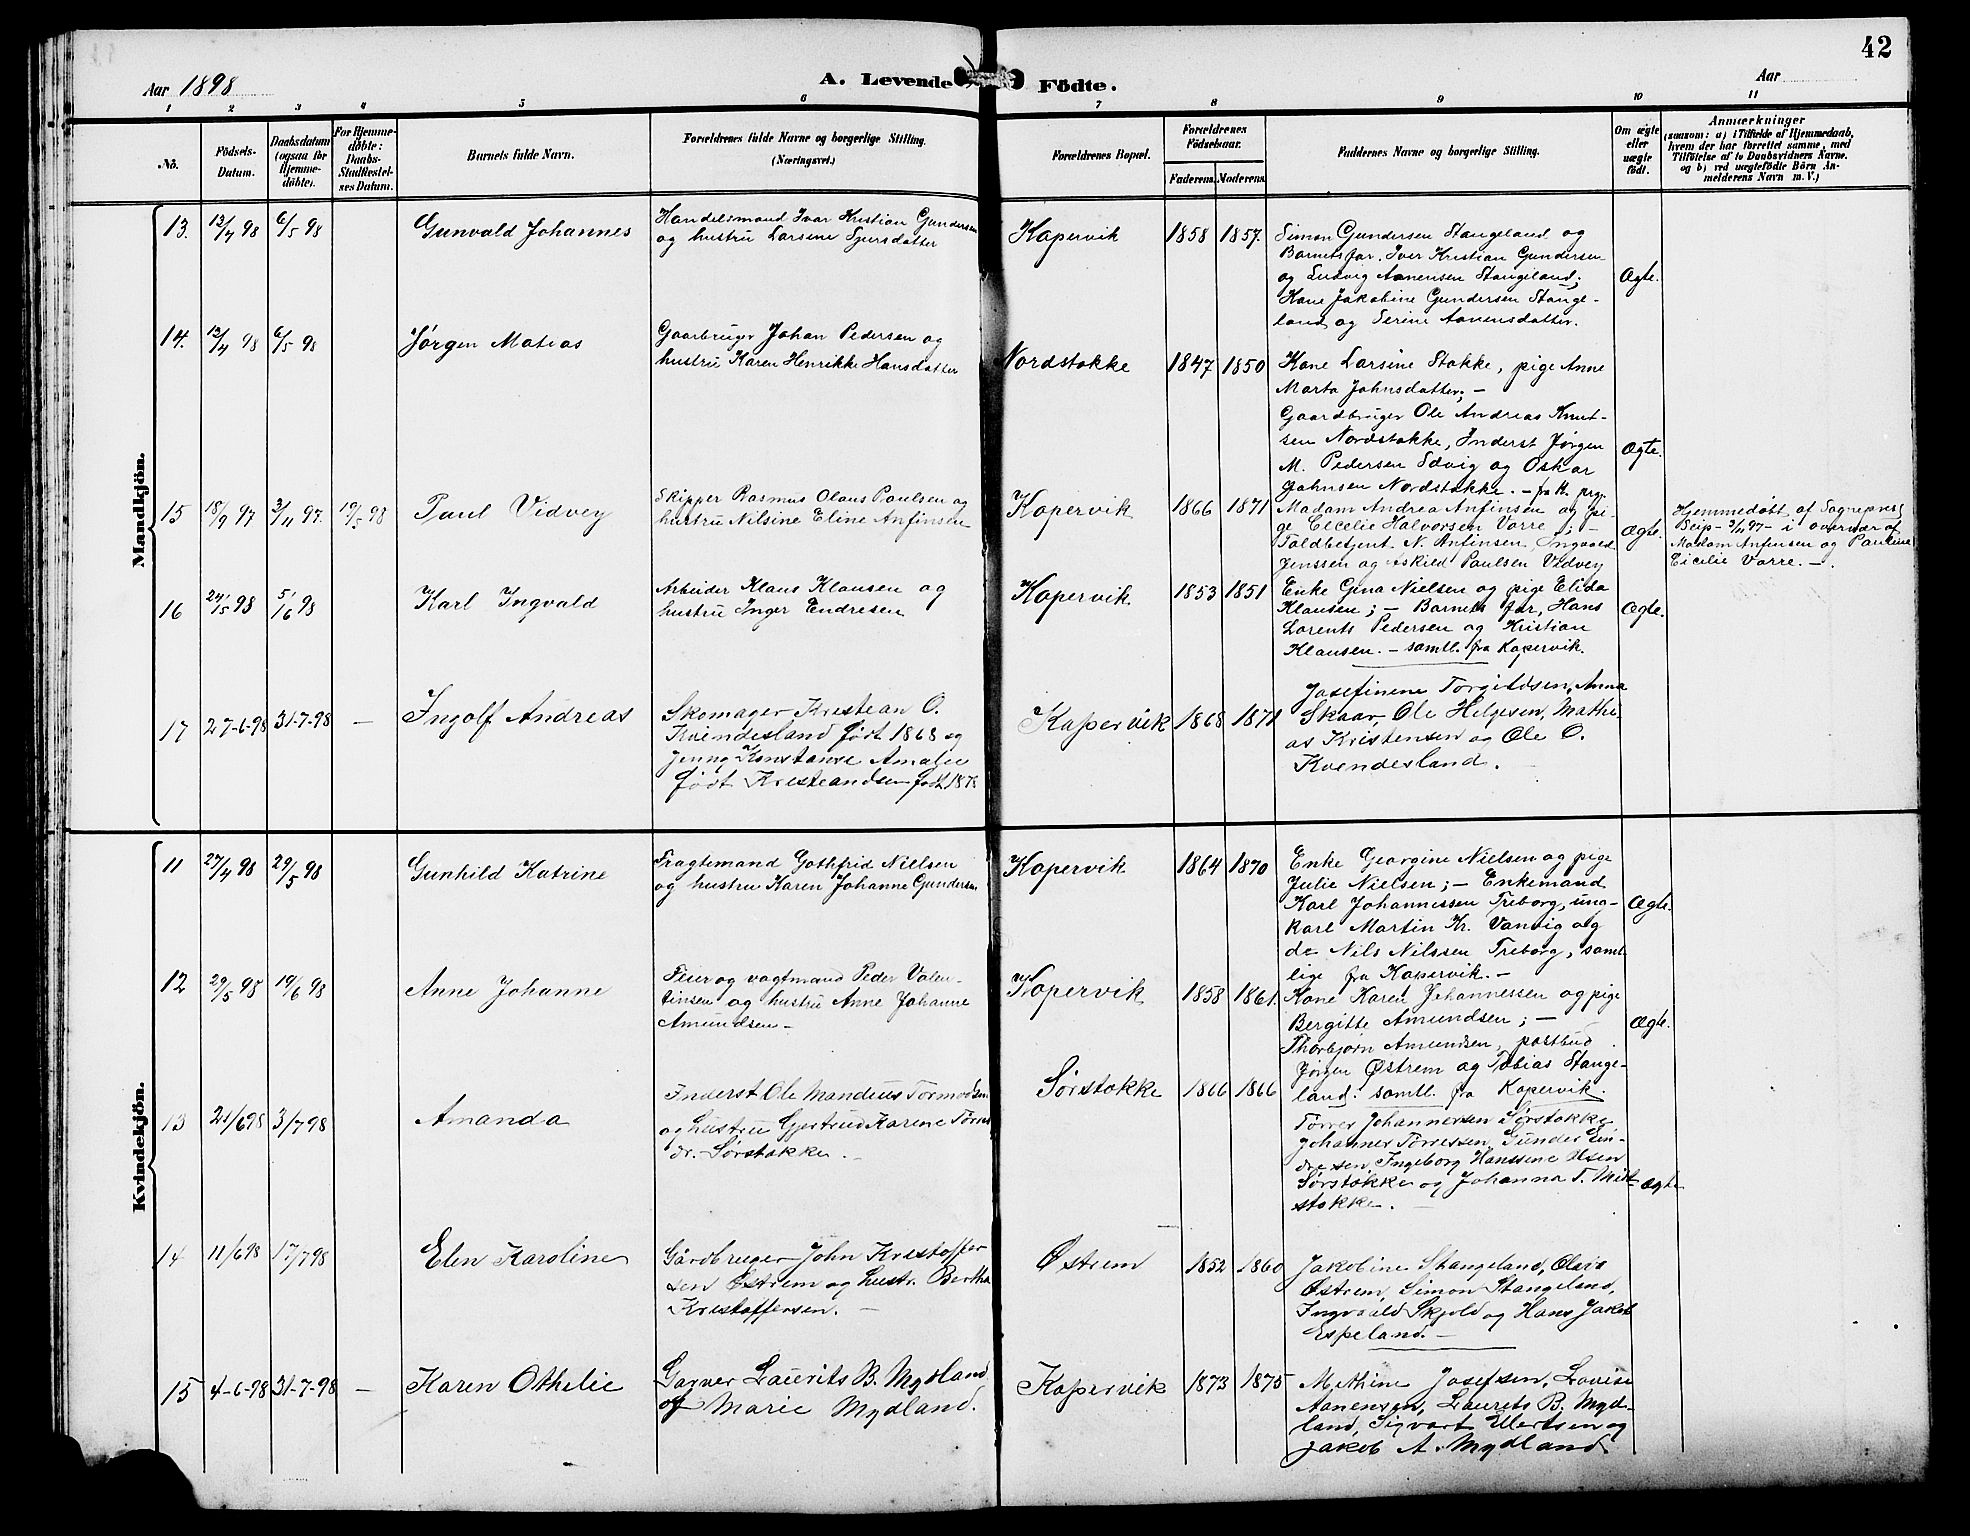 42
Aar 1898
A. Levende Födte.
Aar
1 2 3 4 5 6 7 8 9 10 11
No.
Födsels-Datum.
Daabsdatum (ogsaa for Hjemmedöbte).
For Hjemmedöbte: Daabs-Stadfæstelses Datum.
Barnets fulde Navn.
Forældrenes fulde Navne og borgerlige Stilling. (Næringsvei.)
Forældrenes Bopæl.
Forældrenes Födselsaar.
Faderens. Moderens.
Faddernes Navne og borgerlige Stilling.
Om ægte eller uægte födt.
Anmærkninger
(saasom: a) i Tilfælde af Hjemmedaab,
hvem der har forrettet samme, med
Tilföielse af to Daabsvidners Navne.
og b) ved uægtefödte Börn An-
melderens Navn m. V.)
Mandkjön.
13. 12/4 98 6/5 98 Gunvald Johannes
Handelsmand Ivar Kristian Gundersen
og hustru Larsine Sjursdatter
Kopervik 1858 1857.
Simon Gundersen Stangeland og
Barnets far. Iver Kristian Gundersen
og Ludvig Aanensen Stangeland;
Kone Jakobine Gundersen Stange-
land og Serine Aanensdatter.
Ægte.
14. 12/4 98 6/5 98 Jørgen Matias
Gaarbruger Johan Pedersen og
hustru Karen Henrikke Hansdatter
Nordstokke 1847 1850
Kone Larsine Stokke, pige Anne
Marta Johnsdatter; -
Gaardbruger Ole Andreas Knut-
sen Nordstokke, Inderst Jørgen
M. Pedersen Edvig og Oskar
Johnsen Nordstokke. -
Ægte.
15 18/9 97 3/11 97. 19/5 98 Paul Vidvey
Skipper Rasmus Olaus Paulsen og
hustru Nilsine Eline Anfinsen
Kopervik 1866 1871
Madam Andrea Anfinsen og pi-
ge Cecelie Halvorsen Vorre; -
Toldbetjent N. Anfinsen, Ingvald
Jenssen og Askild Paulsen Vidvey
Ægte.
Hjemmedøbt af Sognepræst
Seip - 3/11 97 - i overvær af
Madam Anfinsen og Pauline
Cicilie Vorre. -
16 24/5 98 5/6 98 Karl Ingvald
Arbeider Klaus Klausen og
hustru Inger Endresen
Kopervik 1853 1851
Enke Gina Nielsen og pige Elida
Klausen; - Barnets far, Hans
Lorents Pedersen og Kristian
Klausen. - samtl. fra Kopervik.
Ægte.
17 27-6-98 31-7-98 - Ingolf Andreas
Skomager Kristean O.
Kvendesland født 1868 og
Jenny Konstanse Amalie
født Kristeandsen født 1871
Kopervik 1868 1871
Josefinene Torgildsen, Anna
Skaar, Ole Helgesen, Mathi-
as Kristensen og Ole O.
Kvendesland.
Kvindekjön.
11 27/4 98 29/5 98 Gunhild Katrine
Fragtemand Gothfrid Nielsen
og hustru Karen Johanne Gundersen
Kopervik 1864 1870
Enke Georgine Nielsen og pige
Julie Nielsen; - Enkemand
Karl Johannessen Treborg, ung-
karl Martin Kr. Vanvig og
do Nils Nilssen Treborg, samt-
lige fra Kopervik. -
Ægte.
12 29/5 98 19/6 98 Anne Johanne
Feier og vagtmand Peder Valen-
tinsen og hustru Anne Johanne
Amundsen -
Kopervik 1858 1861.
Kone Karen Johannessen og pige
Bergitte Amundsen; -
Thorbjørn Amundsen, postbud
Jørgen Østrem og Tobias Stange-
land. samtl. fra Kopervik.
Ægte.
13 21/6 98 3/7 98 Amanda
Inderst Ole Mandius Tormodsen
og hustru Gjertrud Karine Tørres
dr. Sørstokke. -
Sørstokke 1866 1866
Tørres Johannersen Sørstokke,
Johannes Tørresen, Gunder En-
dresen, Ingeborg Hanssine Olsen
Sørstokke og Johanna T. Midt-
stokke.
Ægte
14 11/6 98 17/7 98 Elen Karoline
Gårdbruger John Kristoffer-
sen Østrem og hustr. Bertha
Kristoffersen. -
Østrem 1852 1860
Jakobine Stangeland, Olava
Østrem, Simon Stangeland,
Ingvald Skjold og Hans Jakob
Espeland. -
15 4-6-98 31-7-98 - Karen Othelie
Garver Laurits B. Mydland
og Marie Mydland.
Kopervik 1873 1875
Methine Josefsen, Lovise
Aanensen, Laurits B. Myd-
land, Sigvart Ulertsen og
Jakob A. Mydland